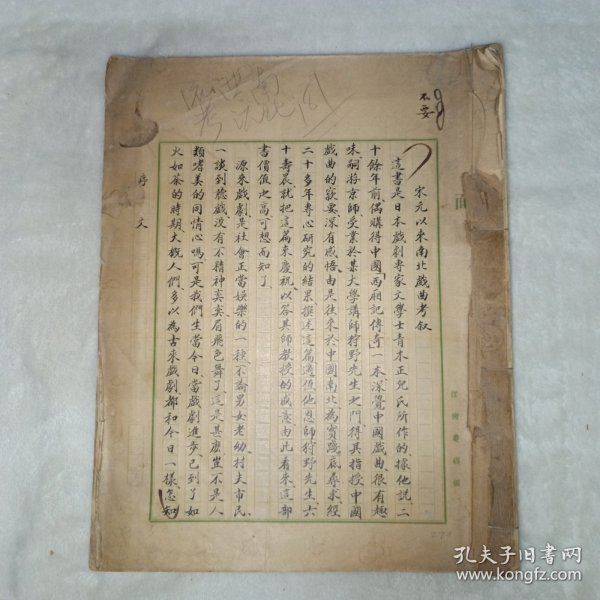 不要
宋元以來南北戲曲考叙
這書是日本戲劇專家文學士青木正兒氏所作的、據他説、二
十餘年前、偶購得中國「西廂記傳奇」一本、深覺中國戲曲、很有趣
味、嗣游京師、受業於某大學講師狩野先生之門、得其指授中國
戲曲的竅要、深有感悟、由是往來於中國南北、為實踐底尋求、經
二十多年專心研究的結果、撰述這篇、適值他恩師狩野先生、六
十壽辰、就把這篇來慶祝、以答其師教授的盛意、由此看來、這部
書價值之高、可想而知了、
源來戲劇、是社會正當娛樂的一種、不論男女老幼、村夫市民、
一談到聽戲、沒有不精神奕奕、眉飛色舞了、這是甚麽、豈不是人
類嗜美的同情心嗎、可是我們生當今日、當戲劇進步、已到了如
火如荼的時期、大概人們、多以為古來戲劇、都和今日一樣、怎知
序文
孔夫子旧书网
www.kongfz.com